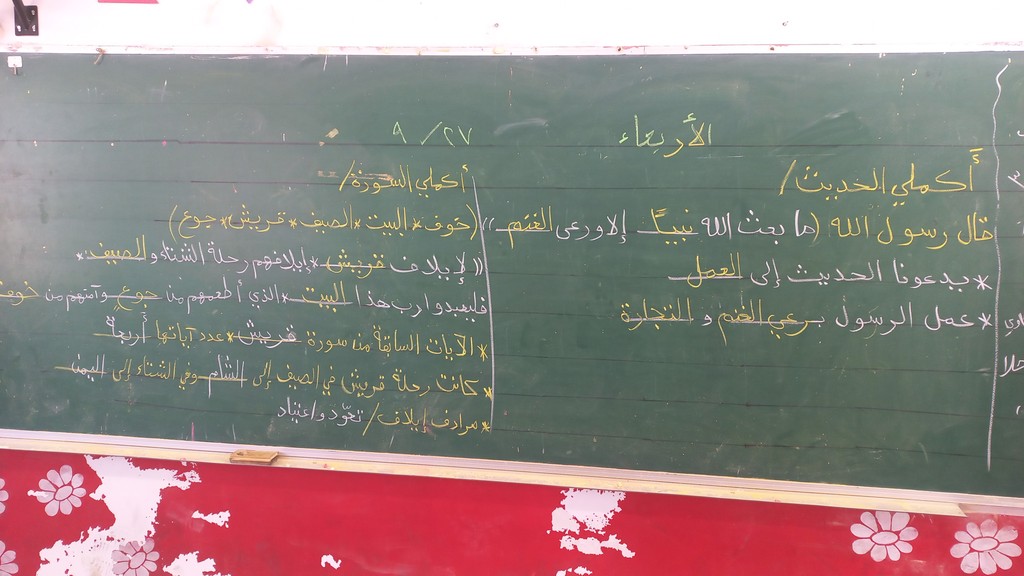 الأربعاء ٢٧/ ٩
أكملي الحديث/
قال رسول الله (ما بعث الله نبيًا إلا ورعى الغنم))
*يدعونا الحديث إلى العمل
*عمل الرسول برعي الغنم و التجارة
أكملي السورة/
(خوف*البيت*الصيف*قريش*جوع)
((لإيلاف قريش*إيلافهم رحلة الشتاء والصيف*
فليعبدوا رب هذا البيت*الذي أطعمهم من جوع وآمنهم من خوف
*الآيات السابقة من سورة قريش*عدد آياتها أربعة
*كانت رحلة قريش في الصيف إلى الشام وفي الشتاء إلى اليمن
*مرادف إيلاف/تعوّد واعتياد